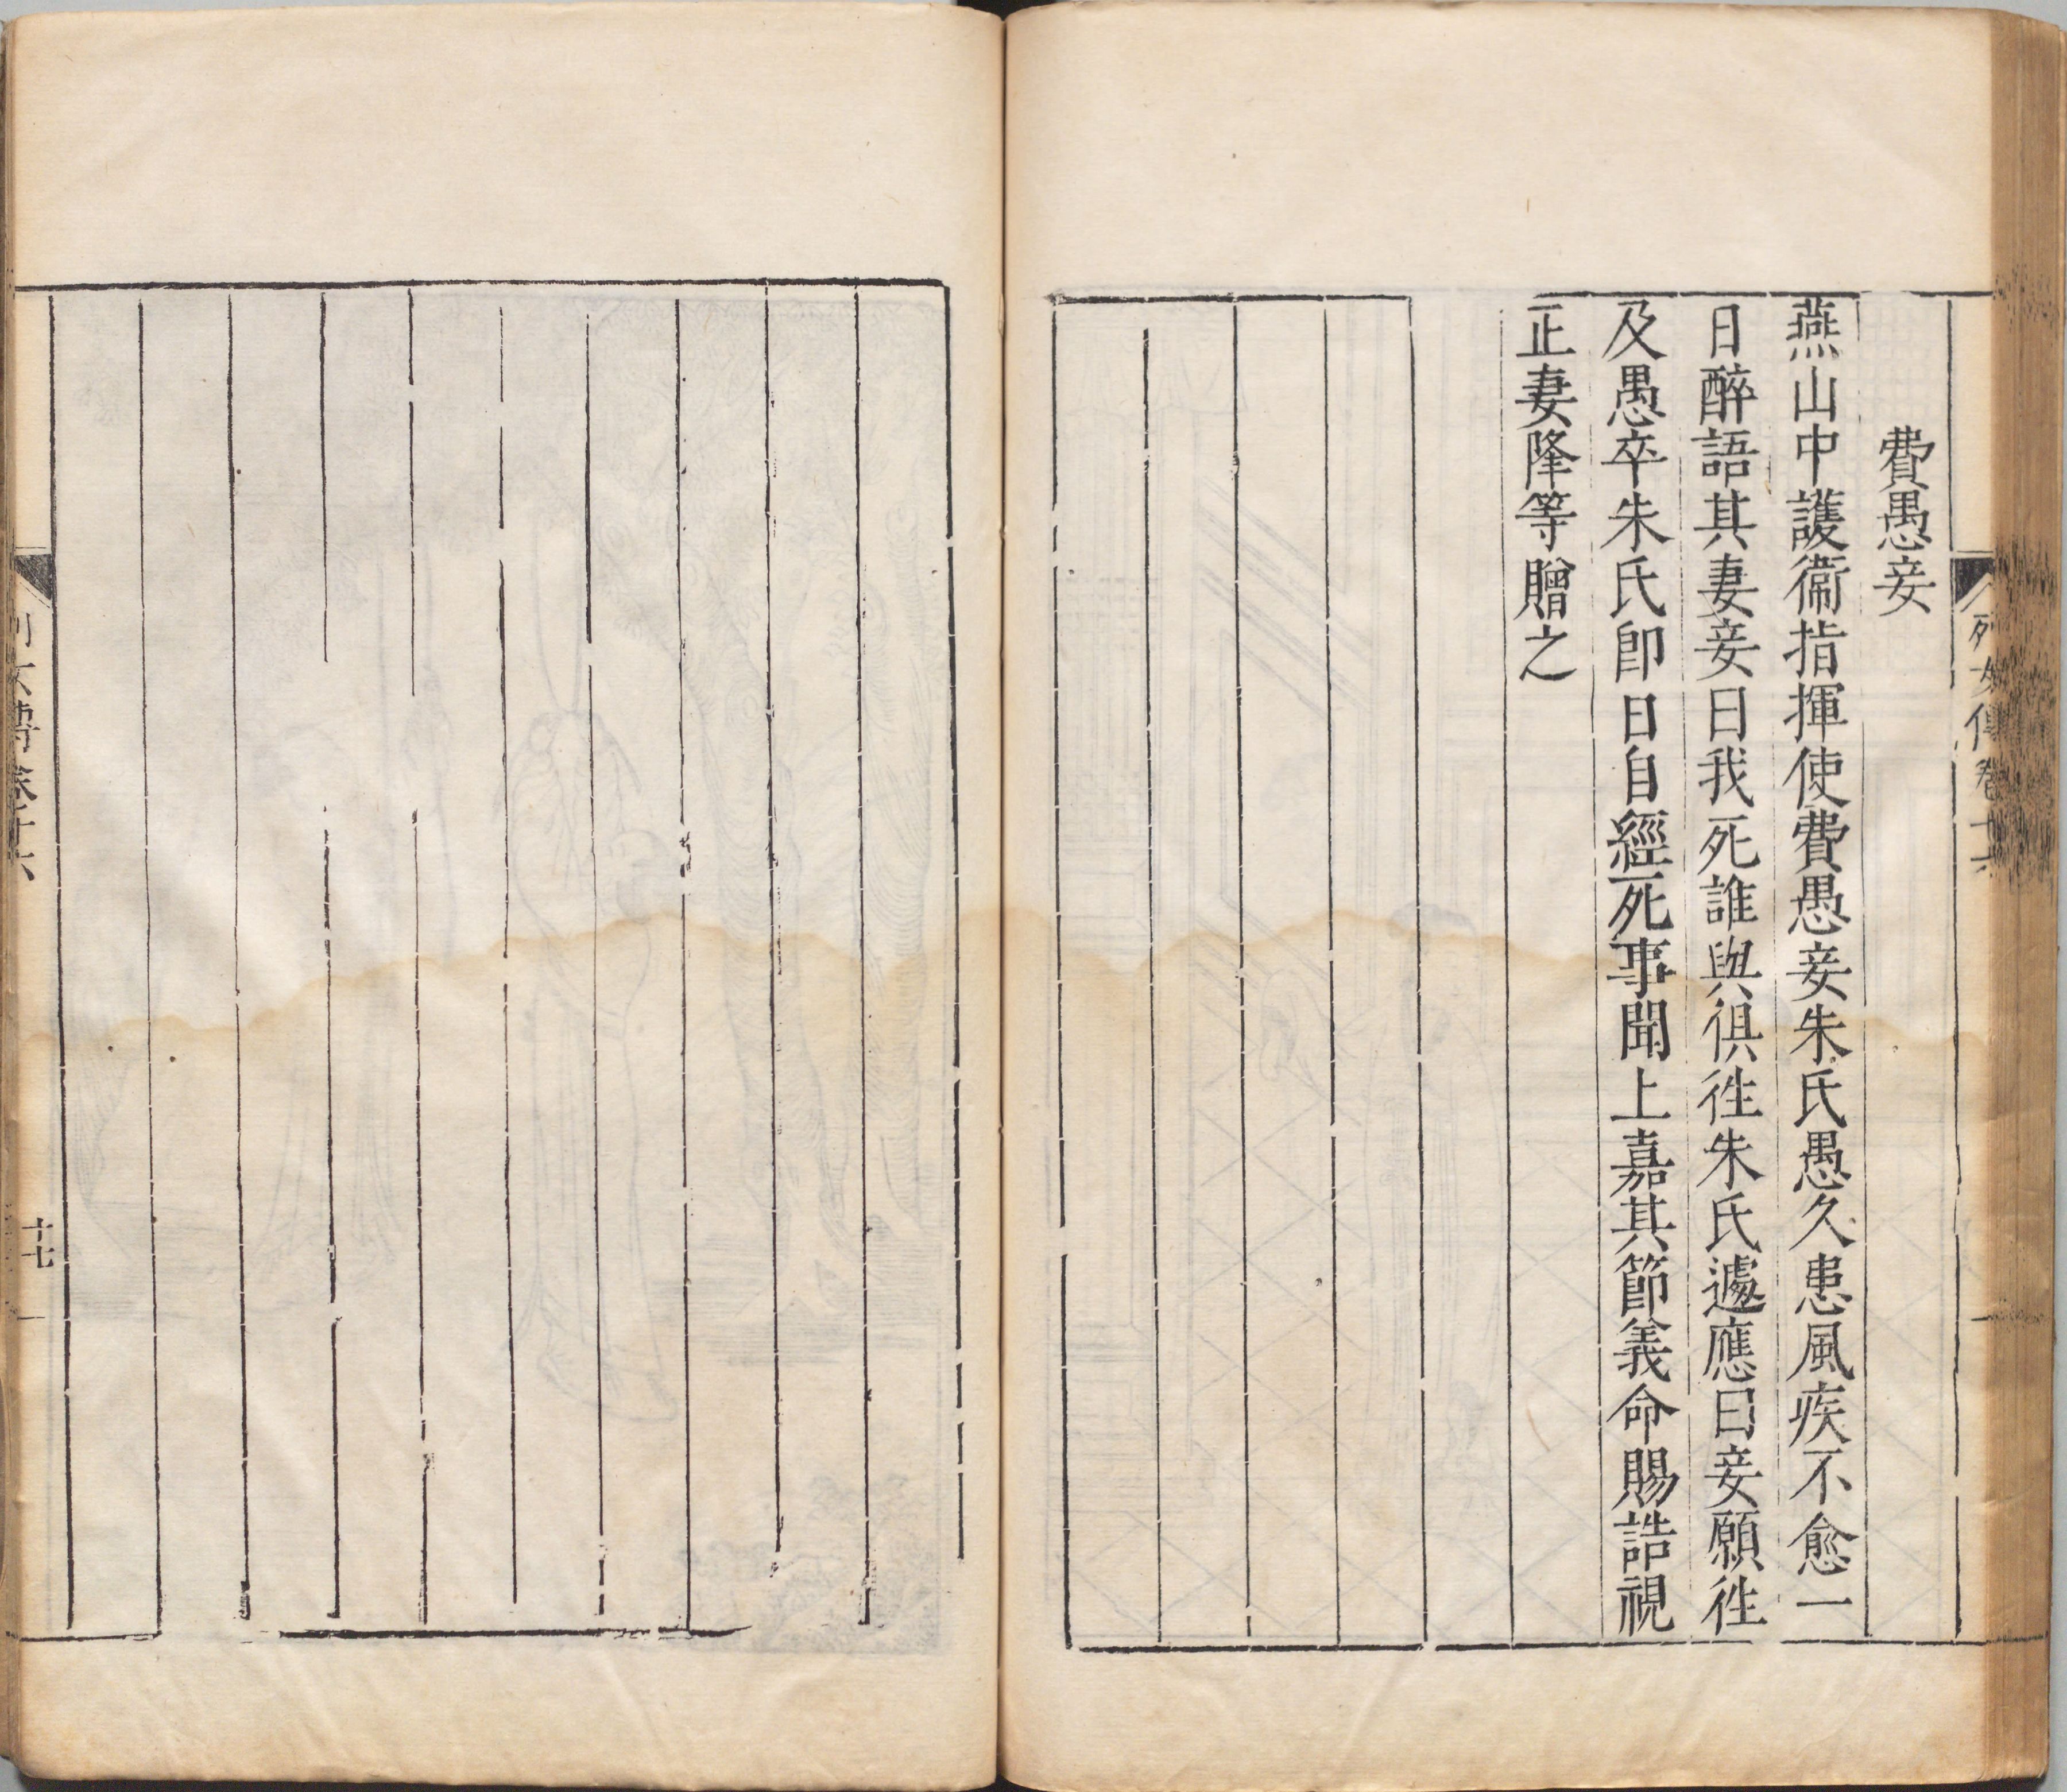 列女傳卷十六
費愚妾
燕山中護衞指揮使費愚妾朱氏愚久患風疾不愈一
日醉語其妻妾曰我死誰與俱徃朱氏遽應曰妾願徃
及愚卒朱氏卽日自經死事聞上嘉其節義命賜誥視
正妻隆等贈之
列女傳卷十六
十七